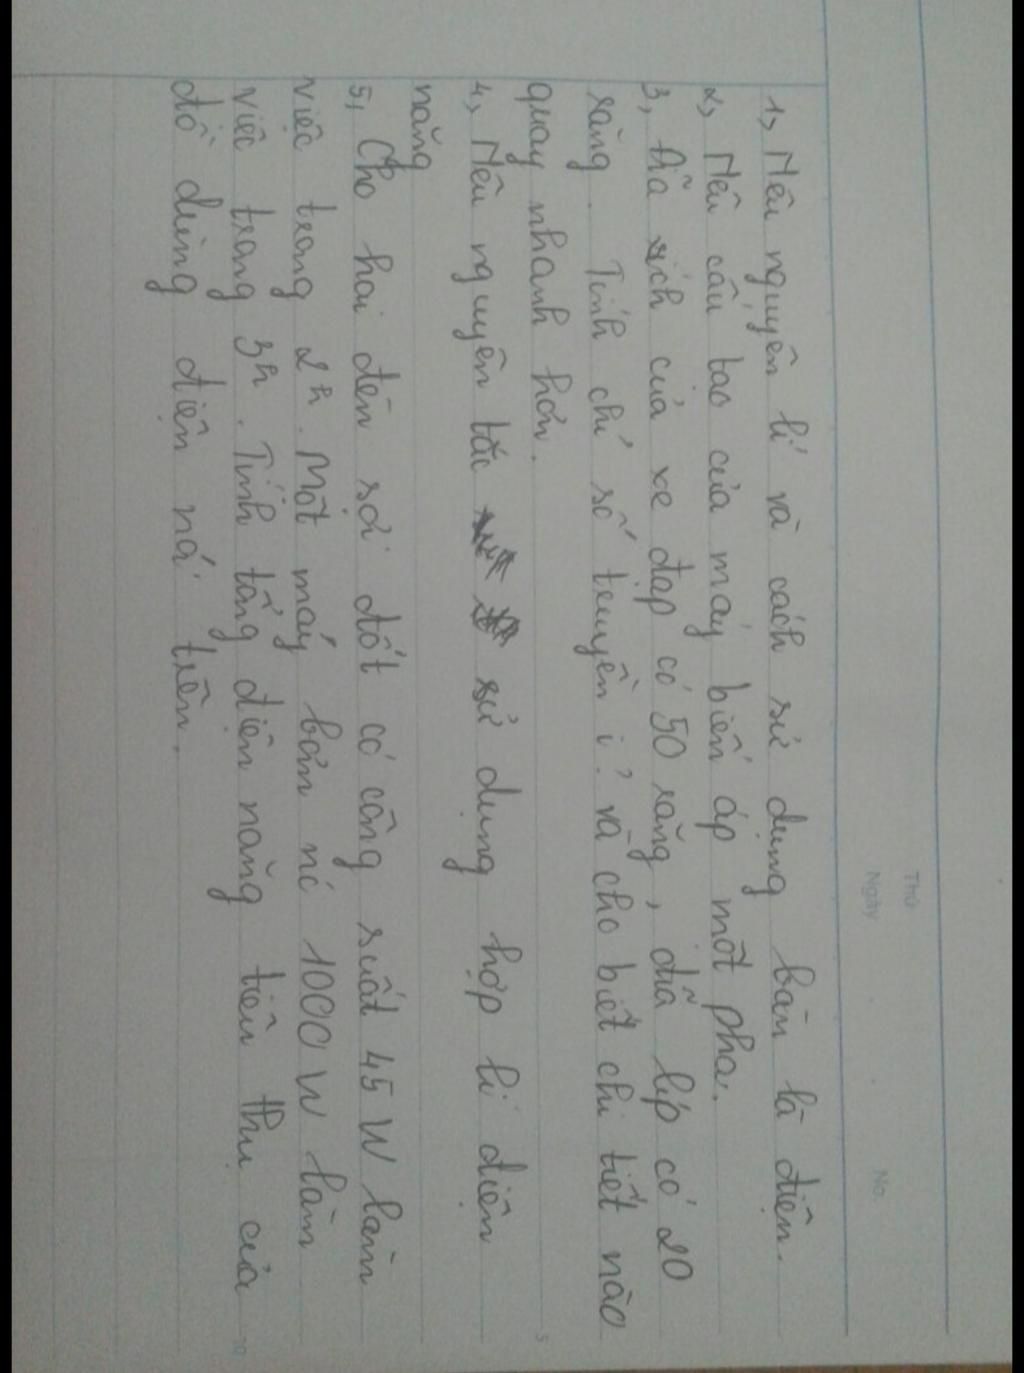 Thứ
Ngày
No.
1, Nêu nguyên lí và cách sử dụng bàn là điện.
2, Nêu cấu tạo của máy biến áp một pha.
3, Đĩa xích của xe đạp có 50 răng, đĩa líp có 20
răng. Tính chỉ số truyền i? và cho biết chi tiết nào
quay nhanh hơn.
4, Nêu nguyên tắc sử dụng hợp lí điện
năng
5, Cho hai đèn sợi đốt có công suất 45 W làm
việc trong 2h. Một máy bơm nć 1000 W làm
việc trong 3h. Tính tổng điện năng tiêu thụ của
đồ dùng điện nói trên.
5
10